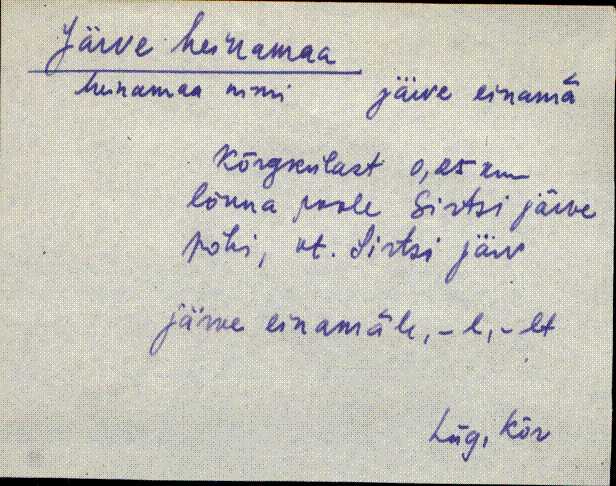 Järve heinamaa
heinamaa nimi järve einamā
Kõrgkülast 0,25 km
lõuna poole Sirtsi järve
põhi, vt. Sirtsi järv
järve einamāle, -l, -lt
Lüg, Kõr